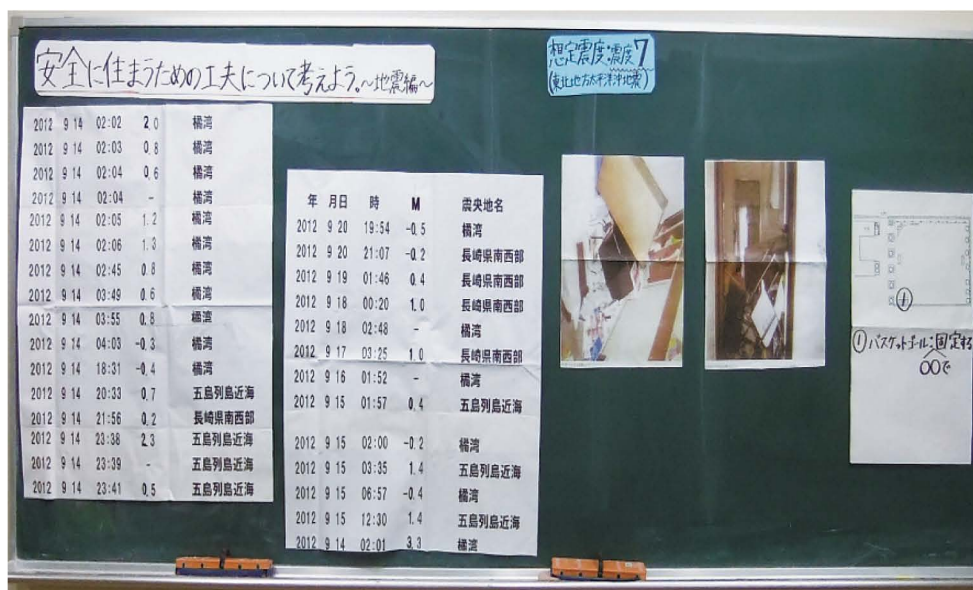 安全に住まうための工夫について考えよう。~地震編~
2012 9 14 02:02 2.0 橘湾
2012 9 14 02:03 0.8 橘湾
2012 9 14 02:04 0.6 橘湾
2012 9 14 02:04 - 橘湾
2012 9 14 02:05 1.2 橘湾
2012 9 14 02:06 1.3 橘湾
2012 9 14 02:45 0.8 橘湾
2012 9 14 03:49 0.6 橘湾
2012 9 14 03:55 0.8 橘湾
2012 9 14 04:03 -0.3 橘湾
2012 9 14 18:31 -0.4 橘湾
2012 9 14 20:33 0.7 五島列島近海
2012 9 14 21:56 0.2 長崎県南西部
2012 9 14 23:38 2.3 五島列島近海
2012 9 14 23:39 - 五島列島近海
2012 9 14 23:41 0.5 五島列島近海
年 月日 時 M 震央地名
2012 9 20 19:54 -0.5 橘湾
2012 9 20 21:07 -0.2 長崎県南西部
2012 9 19 01:46 0.4 長崎県南西部
2012 9 18 00:20 1.0 長崎県南西部
2012 9 18 02:48 - 橘湾
2012 9 17 03:25 1.0 長崎県南西部
2012 9 16 01:52 - 橘湾
2012 9 15 01:57 0.4 五島列島近海
2012 9 15 02:00 -0.2 橘湾
2012 9 15 03:35 1.4 五島列島近海
2012 9 15 06:57 -0.4 橘湾
2012 9 15 12:30 1.4 五島列島近海
2012 9 14 02:01 3.3 橘湾
想定震度:震度7
(東北地方太平洋沖地震)
①
①バスケットゴール:固定する
○○で